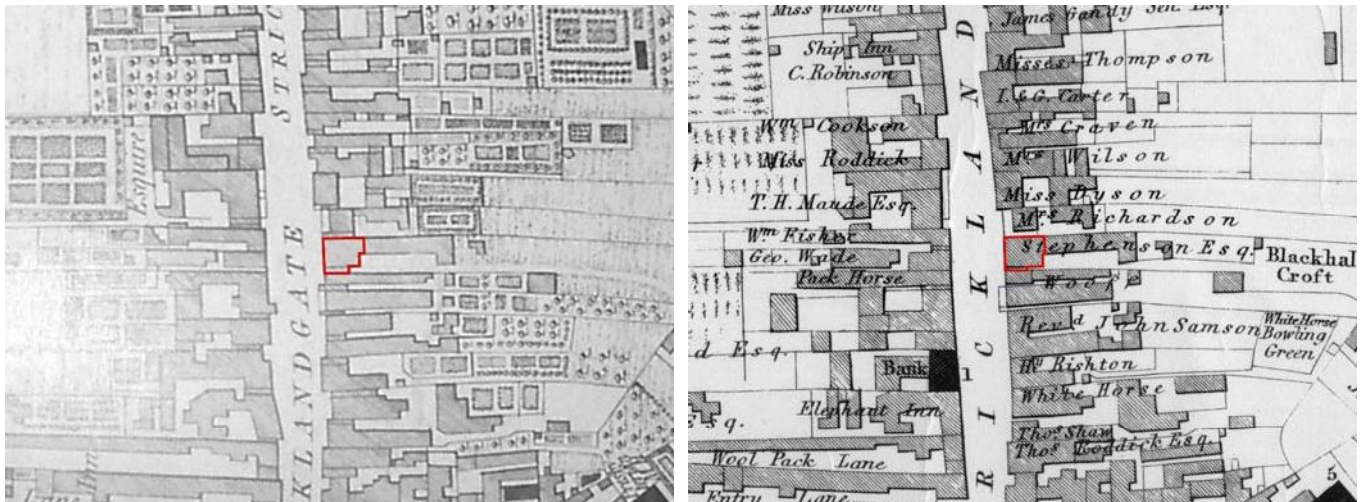 STRIC
KLANDGATE
Esquire
Lane
Miss Wilson
Ship Inn
C. Robinson
Wm Cookson
Miss Roddick
T. H. Maude Esq.
Wm Fisher
Geo. Wade
Pack Horse
d Esq.
Bank
Elephant Inn
Esq.
Wool Pack Lane
Entry Lane
RICKLAND
1
James Gandy Sen. Esq.
Misses Thompson
I. & G. Carter
Mrs Craven
Mrs Wilson
Miss Dyson
Mrs Richardson
Stephenson Esq.
Blackhal
Croft
Revd John Samson
White Horse
Bowling
Green
Rishton
White Horse
Thos Shaw
Thos Roddick Esq.
5